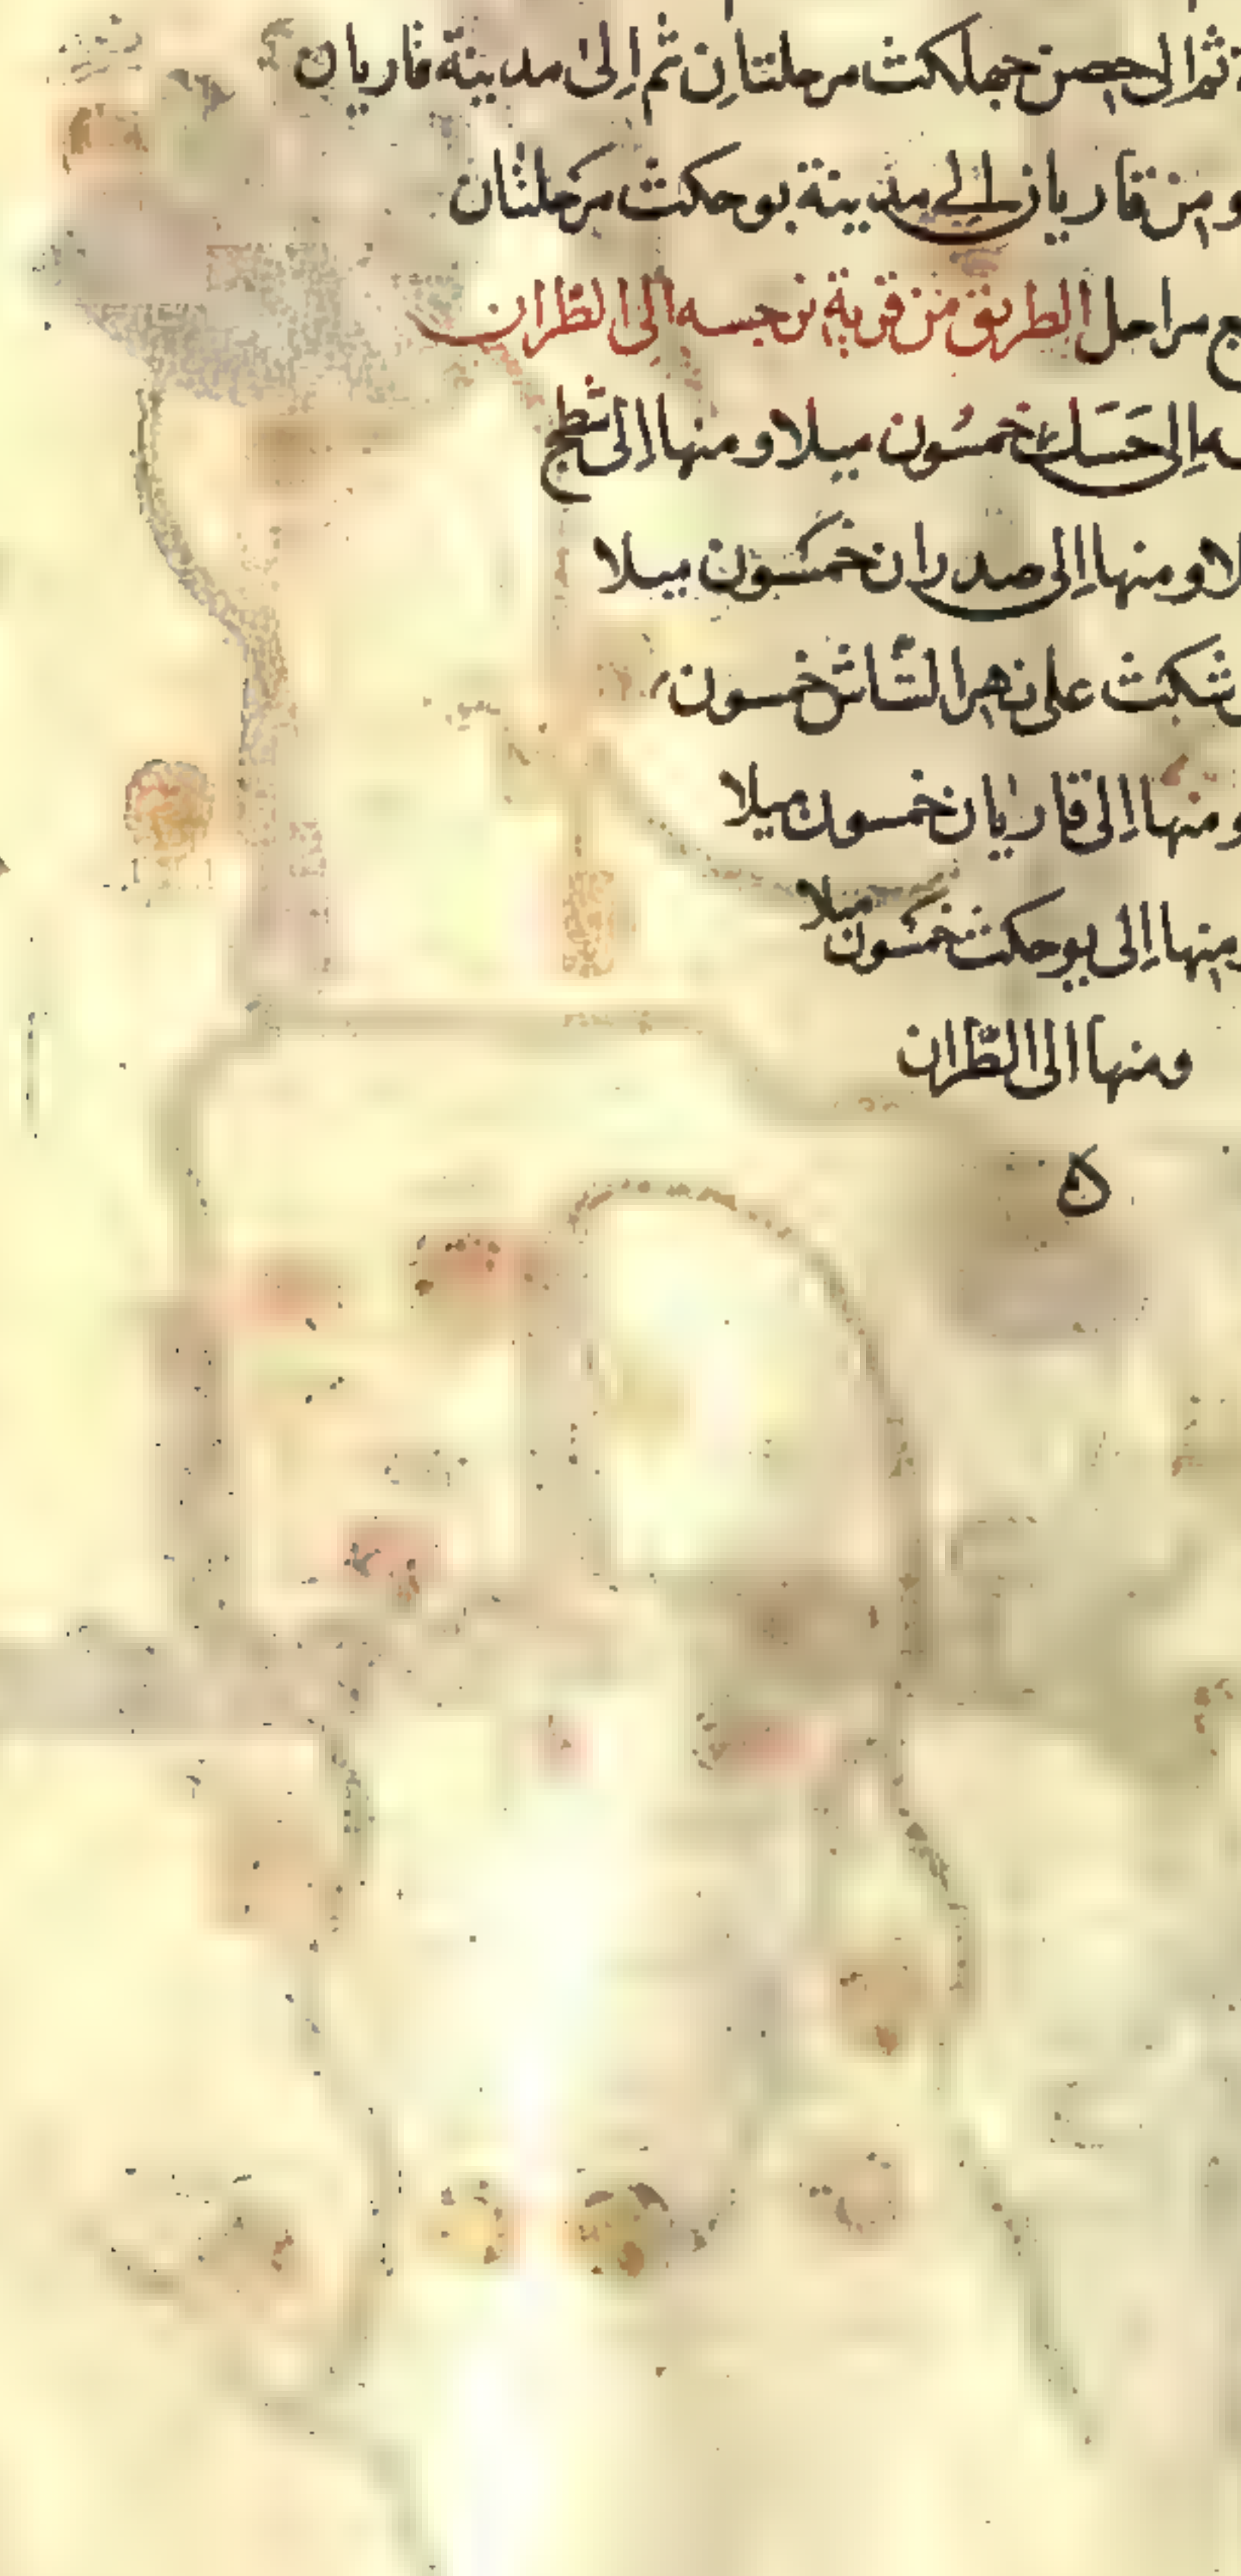 ثم الى حصن جملكث مرحلتان ثم الى مدينة قاريان
ومن قاريان الى مدينة بوحكث مرحلتان
مراحل الطريق من قرية نرجسه الى الطران
الى حسك خمسون ميلا ومنها الى شطح
ومنها الى صدران خمسون ميلا
شكث على نهر الشاش خمسون
ومنها الى قاريان خمسون ميلا
ومنها الى بوحكث خمسون ميلا
ومنها الى الطران
ه